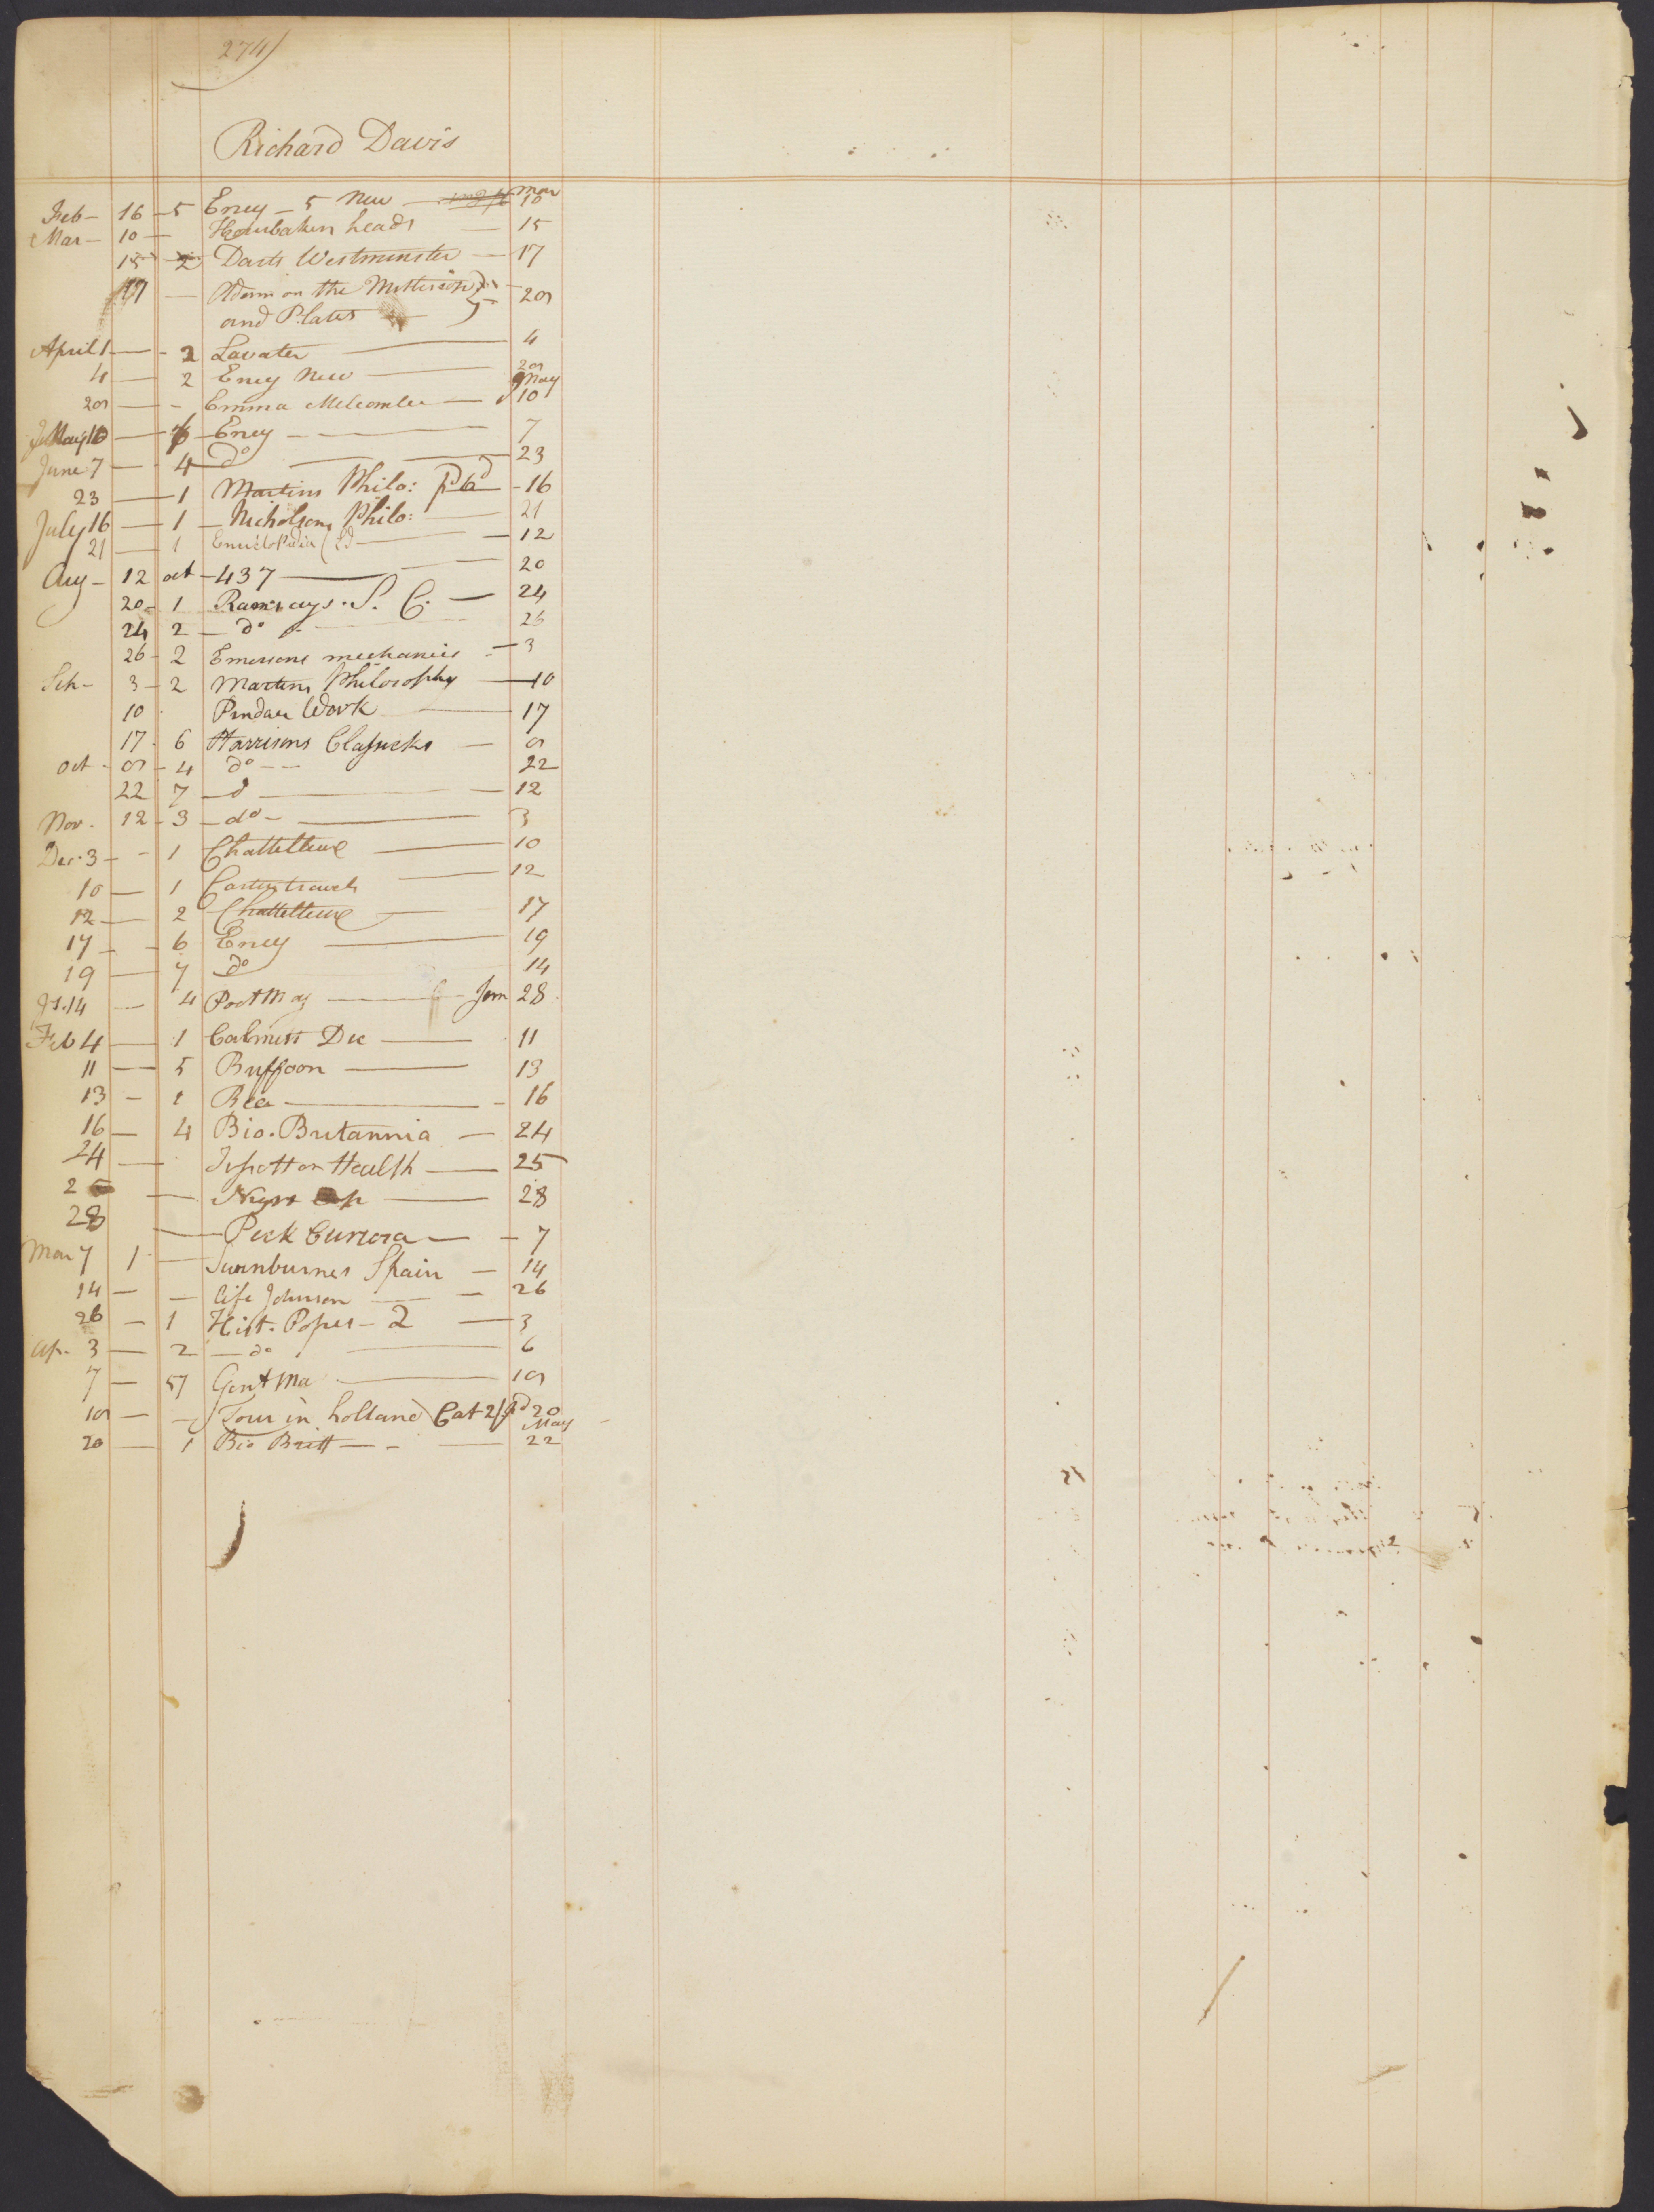 274)
Richard Davis
Feb - 16 - 5 Ency - 5 New - Mar 10
Mar - 10 - Houbaken heads - 15
15 - 2 Darts Westminster - 17
17 - Adam on the
and Plates - 29
April 1 - 2 Lavater - 4
4 - 2 Ency New - 29
29 - - Emma Melcombe - May 10
May 10 - Ency - 7
June 7 - 4 do - 23
23 - 1 Martins Philo: pd 6d - 16
July 16 - 1 - Nicholsons Philo: - 21
21 - 1 - 12
Aug - 12 oct - 437 - 20
20 - 1 Ramsays. S. C. - 24
24 2 - do - 26
26 - 2 Emersons mechanics - 3
3 - 2 Martins Philosophy - 10
10 Pindar Work - 17
17 - 6 Harrisons Classicks - 9
Oct - 9 - 4 do - - 22
22 7 - d - 12
Nov. 12 - 3 - do - 3
Dec. 3 - - 1 Chattelleux - 10
10 - 1 travels - 12
12 - 2 Chattelleux - 17
17 - - 6 Ency - 19
19 - 7 do 14
14 - 4 Poet Mag - Jan 28
Feb 4 - 1 Cabinett Dec - 11
11 - 5 Buffoon - 13
13 - 1 Rea - 16
16 - 4 Bio. Britannia - 24
24 - on Health - 25
2 - - 28
28 - Peek Curiora - - 7
Mar 7 1 - Swinburnes Spain - 14
14 - - life Johnson - - 26
26 - 1 Hist. Popes - 2 - 3
Ap. 3 - 2 - do - 6
7 - 57 Gent Ma - 19
19 - - Tour in holland Cat 2/ pd 20
20 - 1 Bio Britt - - - May 22